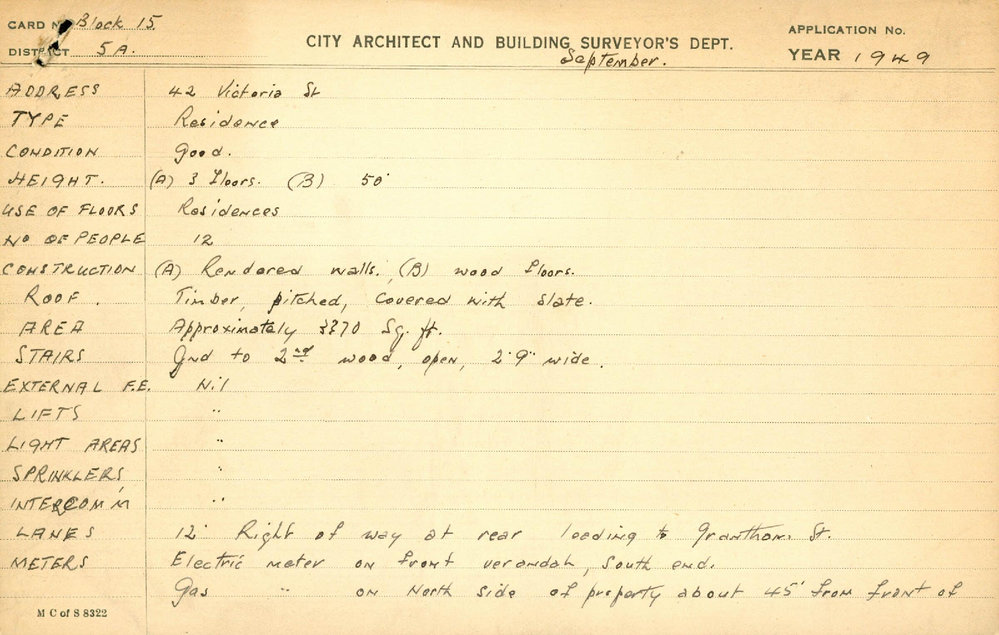 CARD No Block 15.
DISTRICT 5A.
CITY ARCHITECT AND BUILDING SURVEYOR'S DEPT.
September.
APPLICATION No.
YEAR 1949
ADDRESS 42 Victoria St
TYPE Residence
CONDITION Good.
HEIGHT. (A) 3 Floors. (B) 50'
USE OF FLOORS Residences
No OF PEOPLE 12
CONSTRUCTION (A) Rendered walls. (B) wood floors.
ROOF. Timber, pitched, covered with slate.
AREA Approximately 3370 Sq. ft.
STAIRS Gnd to 2nd wood, open, 2'9" wide.
EXTERNAL F.E. Nil
LIFTS "
LIGHT AREAS "
SPRINKLERS "
INTERCOM'M "
LANES 12' Right of way at rear leading to Grantham St.
METERS Electric meter on front verandah, South end.
Gas " on North side of property about 45' from front of
M C of S 8322